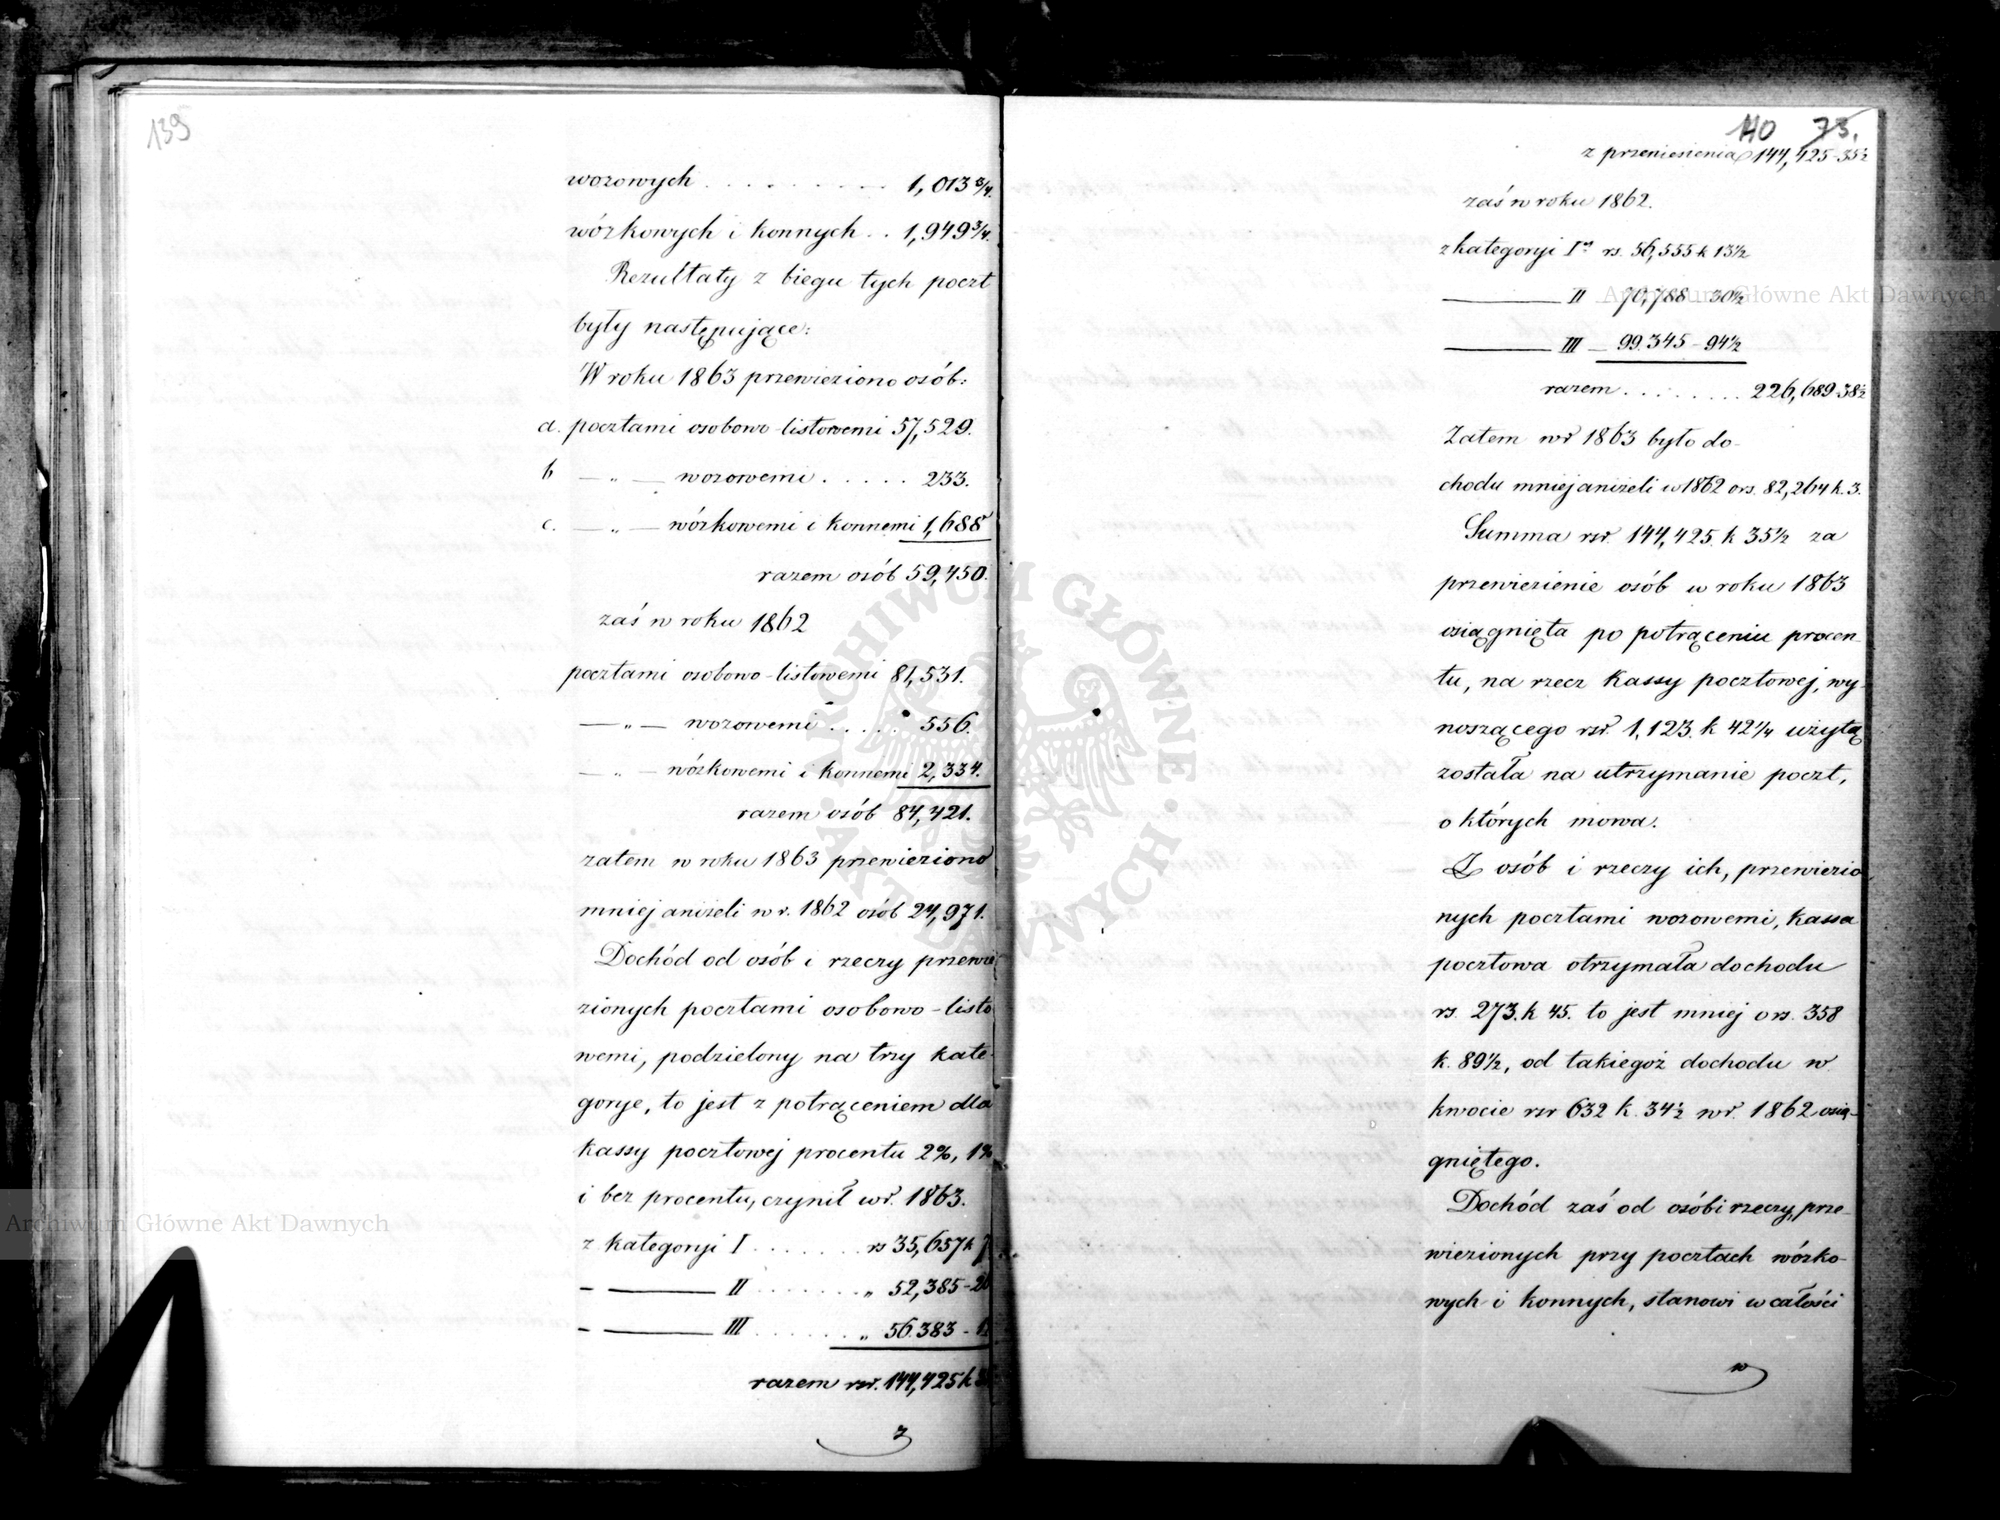 139
wozowych . . . . . . . . . . 1,013 3/4.
wózkowych i konnych . . 1,949 3/4.
Rezultaty z biegu tych poczt
były następujące:
W roku 1863 przewieziono osób:
a. pocztami osobowo-listowemi 57,529.
b — „ — wozowemi . . . . . 233.
c. — „ — wózkowemi i konnemi 1,688
razem osób 59,450.
zaś w roku 1862
pocztami osobowo-listowemi 81,531.
— „ — wozowemi . . . . . 556.
— „ — wózkowemi i konnemi 2,334.
razem osób 84,421.
zatem w roku 1863 przewieziono
mniej aniżeli w r. 1862 osób 24,971.
Dochód od osób i rzeczy przewie
zionych pocztami osobowo-listo
wemi, podzielony na trzy kate-
gorye, to jest z potrąceniem dla
kassy pocztowej procentu 2%, 1%
i bez procentu, czynił w r. 1863.
z kategoryi I . . . . . . . rs 35,657 k 7
— II . . . . . . . „ 52,385 -
— III . . . . . . . „ 56.383 -
razem rsr. 144,425 k
z
140 73.
z przeniesienia 144,425-35½
zaś w roku 1862.
z kategoryi Iéj rs. 56,555 k 13½
— II — 70,788 30½
— III — 99.345 - 94½
razem . . . . . . . . 226,689-38½
Zatem w r 1863 było do-
chodu mniej aniżeli w 1862 o rs. 82,264 k. 3.
Summa rsr. 144,425. k 35½ za
przewiezienie osób w roku 1863
osiągnięta po potrąceniu procen-
tu, na rzecz kassy pocztowej, wy-
noszącego rsr. 1,123. k 42¼ użytą
została na utrzymanie poczt,
o których mowa.
Z osób i rzeczy ich, przewiezio
nych pocztami wozowemi, kassa
pocztowa otrzymała dochodu
rs. 273. k 45. to jest mniej o rs. 358
k. 89½, od takiegoż dochodu w
kwocie rsr 632 k. 34½ w r. 1862 osią-
gniętego.
Dochód zaś od osób i rzeczy, prze-
wiezionych przy pocztach wózko-
wych i konnych, stanowi w całości
w
Archiwum Główne Akt Dawnych
Archiwum Główne Akt Dawnych
ARCHIWUM GŁÓWNE AKT DAWNYCH